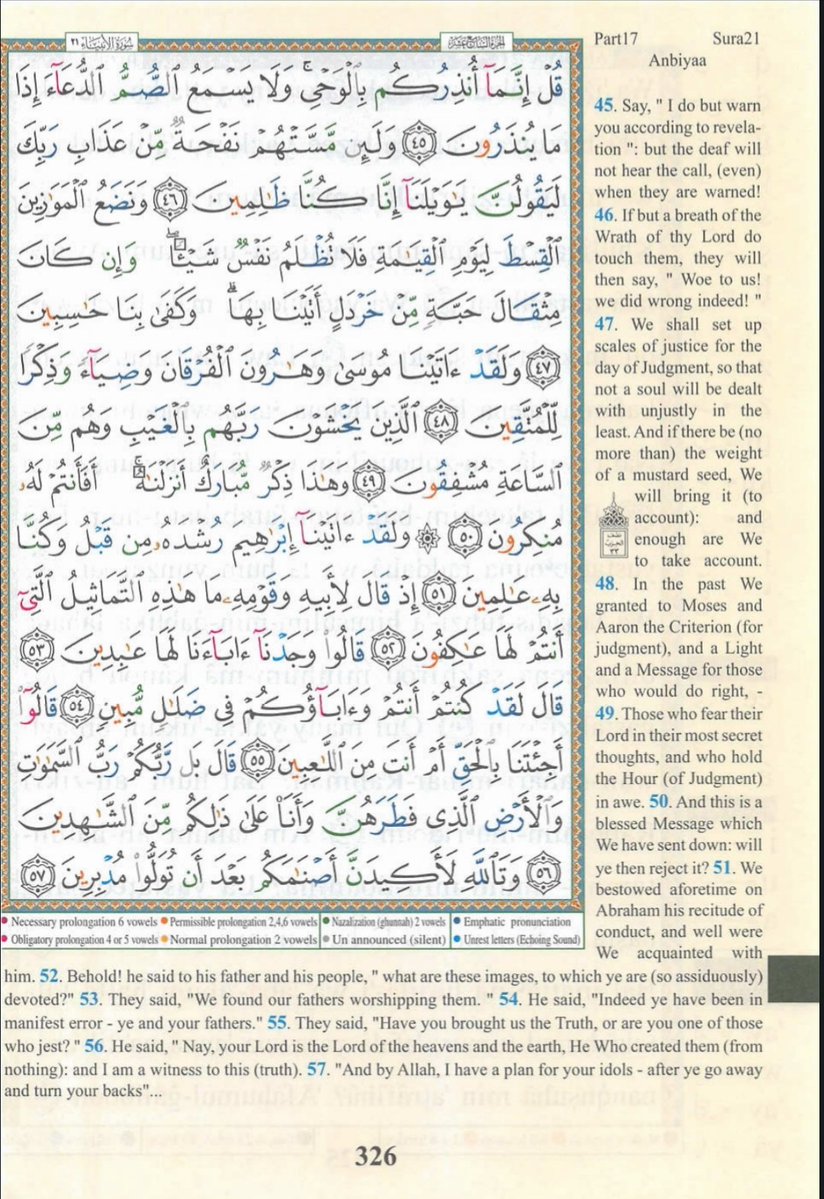 سُورَةُ الأَنبِيَاءِ ٢١
الجُزْءُ السَّابِعَ عَشَرَ
قُلْ إِنَّمَآ أُنذِرُكُم بِٱلْوَحْىِ ۚ وَلَا يَسْمَعُ ٱلصُّمُّ ٱلدُّعَآءَ إِذَا
مَا يُنذَرُونَ ٤٥ وَلَئِن مَّسَّتْهُمْ نَفْحَةٌ مِّنْ عَذَابِ رَبِّكَ
لَيَقُولُنَّ يَٰوَيْلَنَآ إِنَّا كُنَّا ظَٰلِمِينَ ٤٦ وَنَضَعُ ٱلْمَوَٰزِينَ
ٱلْقِسْطَ لِيَوْمِ ٱلْقِيَٰمَةِ فَلَا تُظْلَمُ نَفْسٌ شَيْـًٔا ۖ وَإِن كَانَ
مِثْقَالَ حَبَّةٍ مِّنْ خَرْدَلٍ أَتَيْنَا بِهَا ۗ وَكَفَىٰ بِنَا حَٰسِبِينَ
٤٧ وَلَقَدْ ءَاتَيْنَا مُوسَىٰ وَهَٰرُونَ ٱلْفُرْقَانَ وَضِيَآءً وَذِكْرًا
لِّلْمُتَّقِينَ ٤٨ ٱلَّذِينَ يَخْشَوْنَ رَبَّهُم بِٱلْغَيْبِ وَهُم مِّنَ
ٱلسَّاعَةِ مُشْفِقُونَ ٤٩ وَهَٰذَا ذِكْرٌ مُّبَارَكٌ أَنزَلْنَٰهُ ۚ أَفَأَنتُمْ لَهُۥ
مُنكِرُونَ ٥٠ ۞ وَلَقَدْ ءَاتَيْنَآ إِبْرَٰهِيمَ رُشْدَهُۥ مِن قَبْلُ وَكُنَّا
بِهِۦ عَٰلِمِينَ ٥١ إِذْ قَالَ لِأَبِيهِ وَقَوْمِهِۦ مَا هَٰذِهِ ٱلتَّمَاثِيلُ ٱلَّتِىٓ
أَنتُمْ لَهَا عَٰكِفُونَ ٥٢ قَالُوا۟ وَجَدْنَآ ءَابَآءَنَا لَهَا عَٰبِدِينَ ٥٣
قَالَ لَقَدْ كُنتُمْ أَنتُمْ وَءَابَآؤُكُمْ فِى ضَلَٰلٍ مُّبِينٍ ٥٤ قَالُوٓا۟
أَجِئْتَنَا بِٱلْحَقِّ أَمْ أَنتَ مِنَ ٱللَّٰعِبِينَ ٥٥ قَالَ بَل رَّبُّكُمْ رَبُّ ٱلسَّمَٰوَٰتِ
وَٱلْأَرْضِ ٱلَّذِى فَطَرَهُنَّ وَأَنَا۠ عَلَىٰ ذَٰلِكُم مِّنَ ٱلشَّٰهِدِينَ
٥٦ وَتَٱللَّهِ لَأَكِيدَنَّ أَصْنَٰمَكُم بَعْدَ أَن تُوَلُّوا۟ مُدْبِرِينَ ٥٧
• Necessary prolongation 6 vowels • Permissible prolongation 2,4,6 vowels • Nazalization (ghunnah) 2 vowels • Emphatic pronunciation
• Obligatory prolongation 4 or 5 vowels • Normal prolongation 2 vowels • Un announced (silent) • Unrest letters (Echoing Sound)
Part17 Sura21
Anbiyaa
45. Say, " I do but warn
you according to revela-
tion ": but the deaf will
not hear the call, (even)
when they are warned!
46. If but a breath of the
Wrath of thy Lord do
touch them, they will
then say, " Woe to us!
we did wrong indeed! "
47. We shall set up
scales of justice for the
day of Judgment, so that
not a soul will be dealt
with unjustly in the
least. And if there be (no
more than) the weight
of a mustard seed, We
will bring it (to
account): and
enough are We
to take account.
48. In the past We
granted to Moses and
Aaron the Criterion (for
judgment), and a Light
and a Message for those
who would do right, -
49. Those who fear their
Lord in their most secret
thoughts, and who hold
the Hour (of Judgment)
in awe. 50. And this is a
blessed Message which
We have sent down: will
ye then reject it? 51. We
bestowed aforetime on
Abraham his recitude of
conduct, and well were
We acquainted with
him. 52. Behold! he said to his father and his people, " what are these images, to which ye are (so assiduously)
devoted?" 53. They said, "We found our fathers worshipping them. " 54. He said, "Indeed ye have been in
manifest error - ye and your fathers." 55. They said, "Have you brought us the Truth, or are you one of those
who jest? " 56. He said, " Nay, your Lord is the Lord of the heavens and the earth, He Who created them (from
nothing): and I am a witness to this (truth). 57. "And by Allah, I have a plan for your idols - after ye go away
and turn your backs"...
326